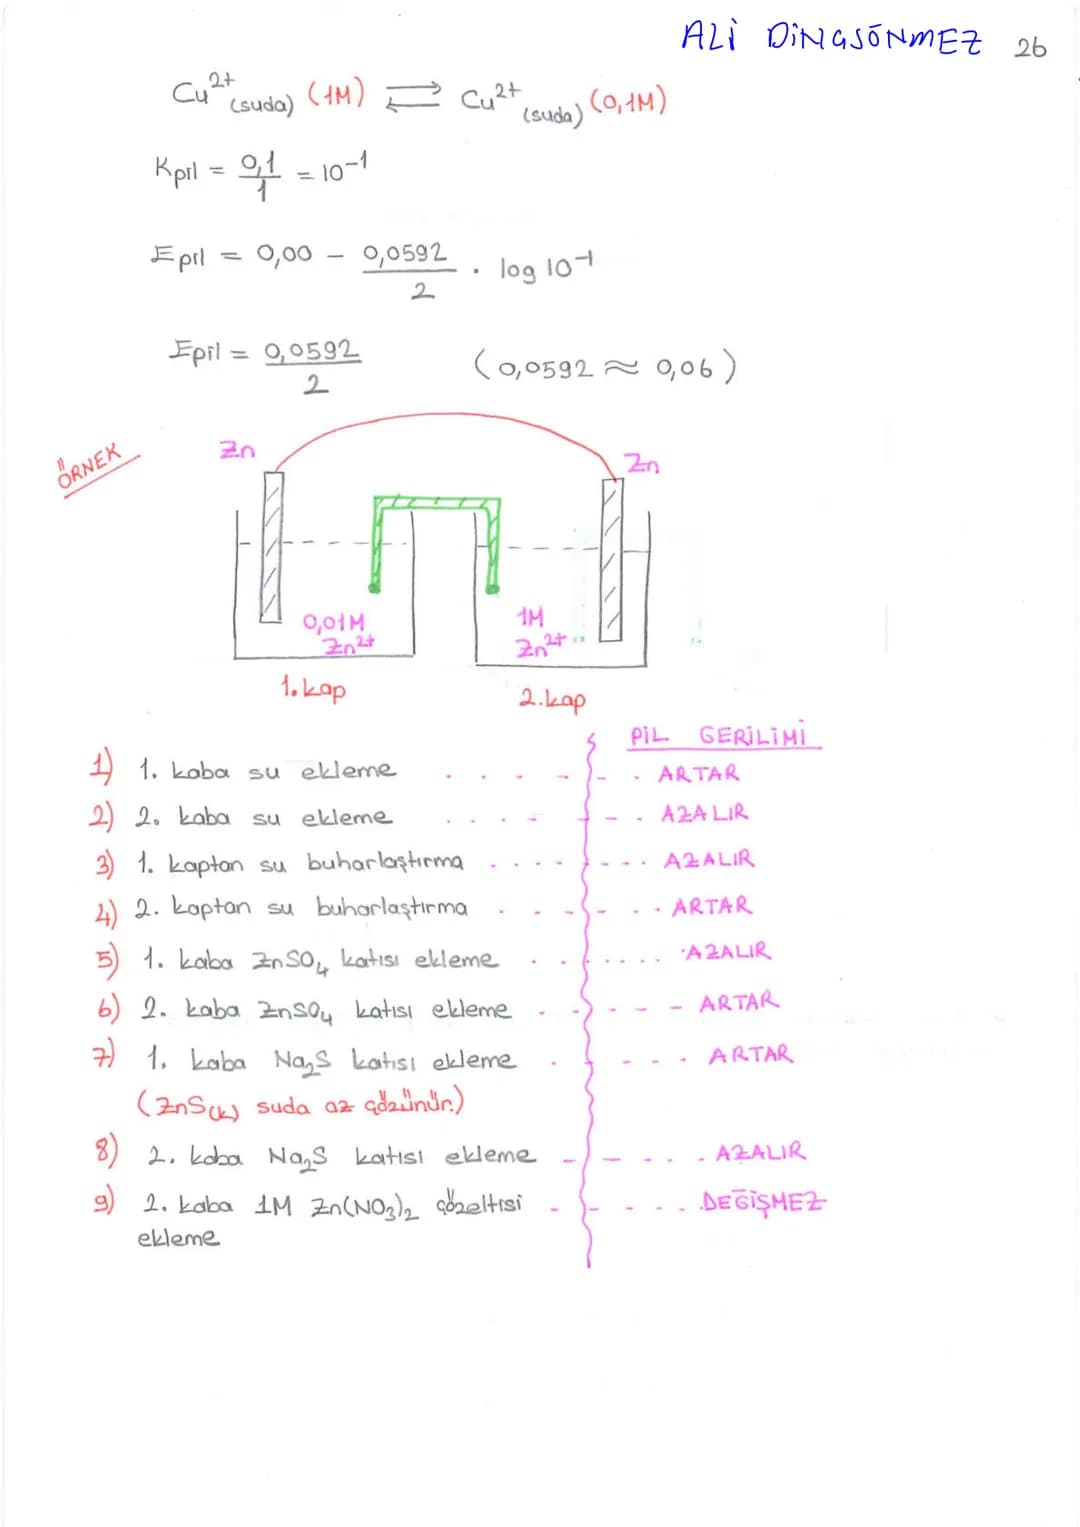 ALİ DİNGSÖNMEZ 26
Cu²⁺(suda) (1M) ⇌ Cu²⁺(suda) (0,1M)
Kpil = 0,1/1 = 10⁻¹
Epil = 0,00 - 0,0592/2 . log 10⁻¹
Epil = 0,0592/2 (0,0592 ≈ 0,06)
ÖRNEK
Zn Zn
0,01M Zn²⁺ 1M Zn²⁺
1. kap 2. kap
PİL GERİLİMİ
1) 1. kaba su ekleme .... ARTAR
2) 2. kaba su ekleme .... AZALIR
3) 1. kaptan su buharlaştırma .... AZALIR
4) 2. kaptan su buharlaştırma .... ARTAR
5) 1. kaba ZnSO₄ katısı ekleme .... AZALIR
6) 2. kaba ZnSO₄ katısı ekleme .... ARTAR
7) 1. kaba Na₂S katısı ekleme .... ARTAR
(ZnS(k) suda az çözünür.)
8) 2. kaba Na₂S katısı ekleme .... AZALIR
9) 2. kaba 1M Zn(NO₃)₂ çözeltisi .... DEĞİŞMEZ
ekleme